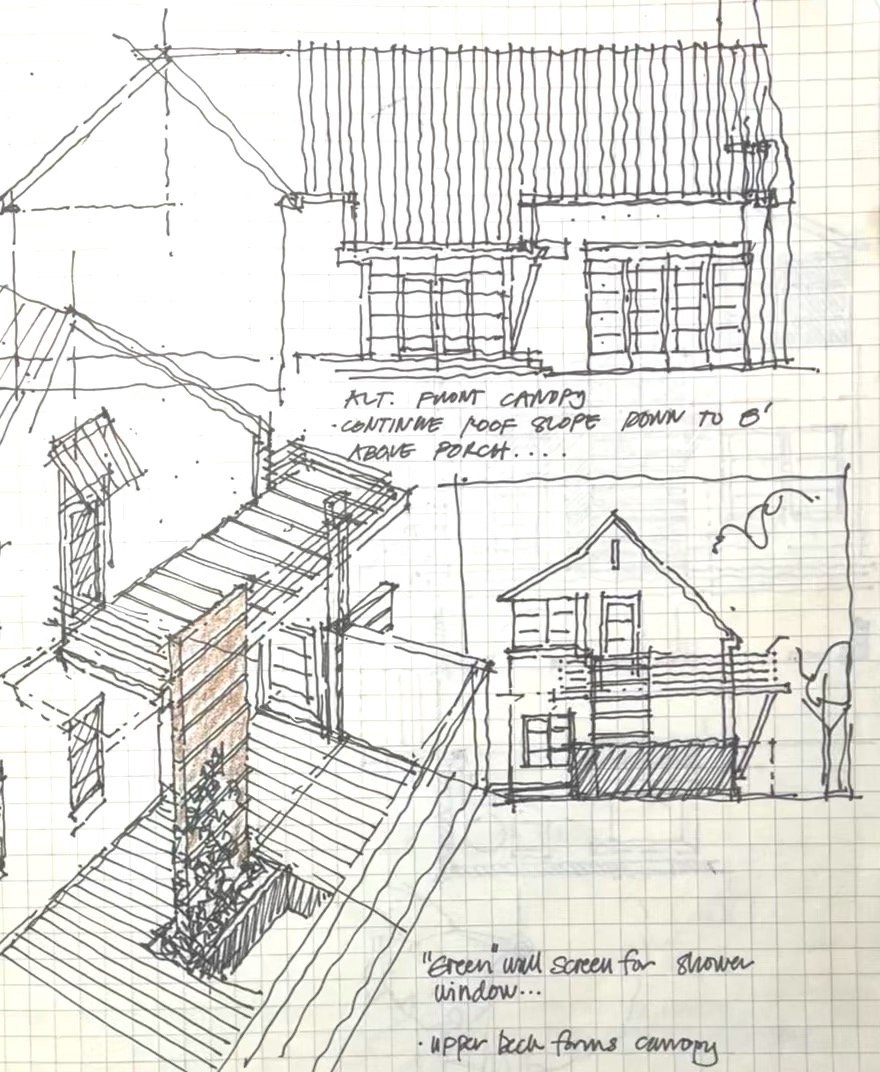 ALT. FRONT CANOPY
· CONTINUE ROOF SLOPE DOWN TO 8'
ABOVE PORCH....
"Green" wall screen for shower
window...
· upper deck forms canopy